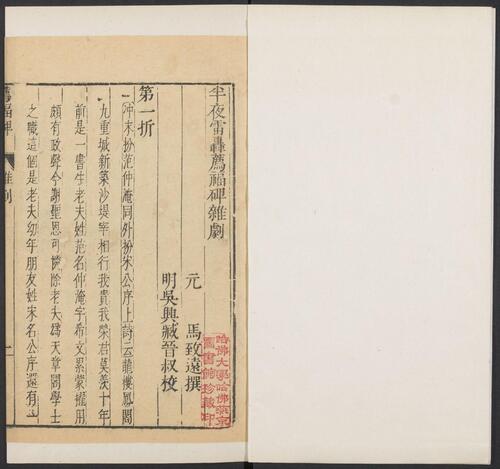 半夜雷轟薦福碑雜劇
元　馬致遠撰
明吳興臧晉叔校
第一折
冲末扮范仲淹同外扮宋公序上詩云龍樓鳳閣
九重城新築沙堤宰相行我貴我榮君莫羡十年
前是一書生老夫姓范名仲淹字希文累蒙擢用
頗有政聲今謝聖恩可憐除老夫為天章閣學士
之職這個是老夫幼年朋友姓宋名公序還有
薦福碑
雜劇
一
哈佛大學哈佛燕京
圖書館珍藏印